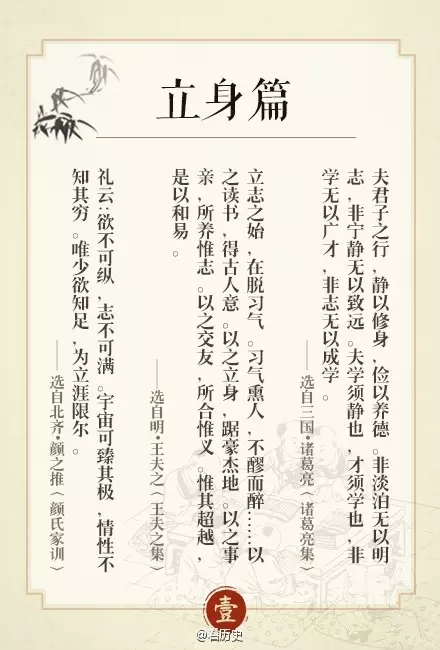 立身篇
夫君子之行，静以修身，俭以养德。非淡泊无以明
志，非宁静无以致远。夫学须静也，才须学也，非
学无以广才，非志无以成学。
——选自三国·诸葛亮（诸葛亮集）
立志之始，在脱习气。习气熏人，不醪而醉……以
之读书，得古人意。以之立身，踞豪杰地。以之事
亲，所养惟志。以之交友，所合惟义。惟其超越，
是以和易。
——选自明·王夫之（王夫之集）
礼云：欲不可纵，志不可满。宇宙可臻其极，情性不
知其穷。唯少欲知足，为立涯限尔。
——选自北齐·颜之推（颜氏家训）
壹
@看历史